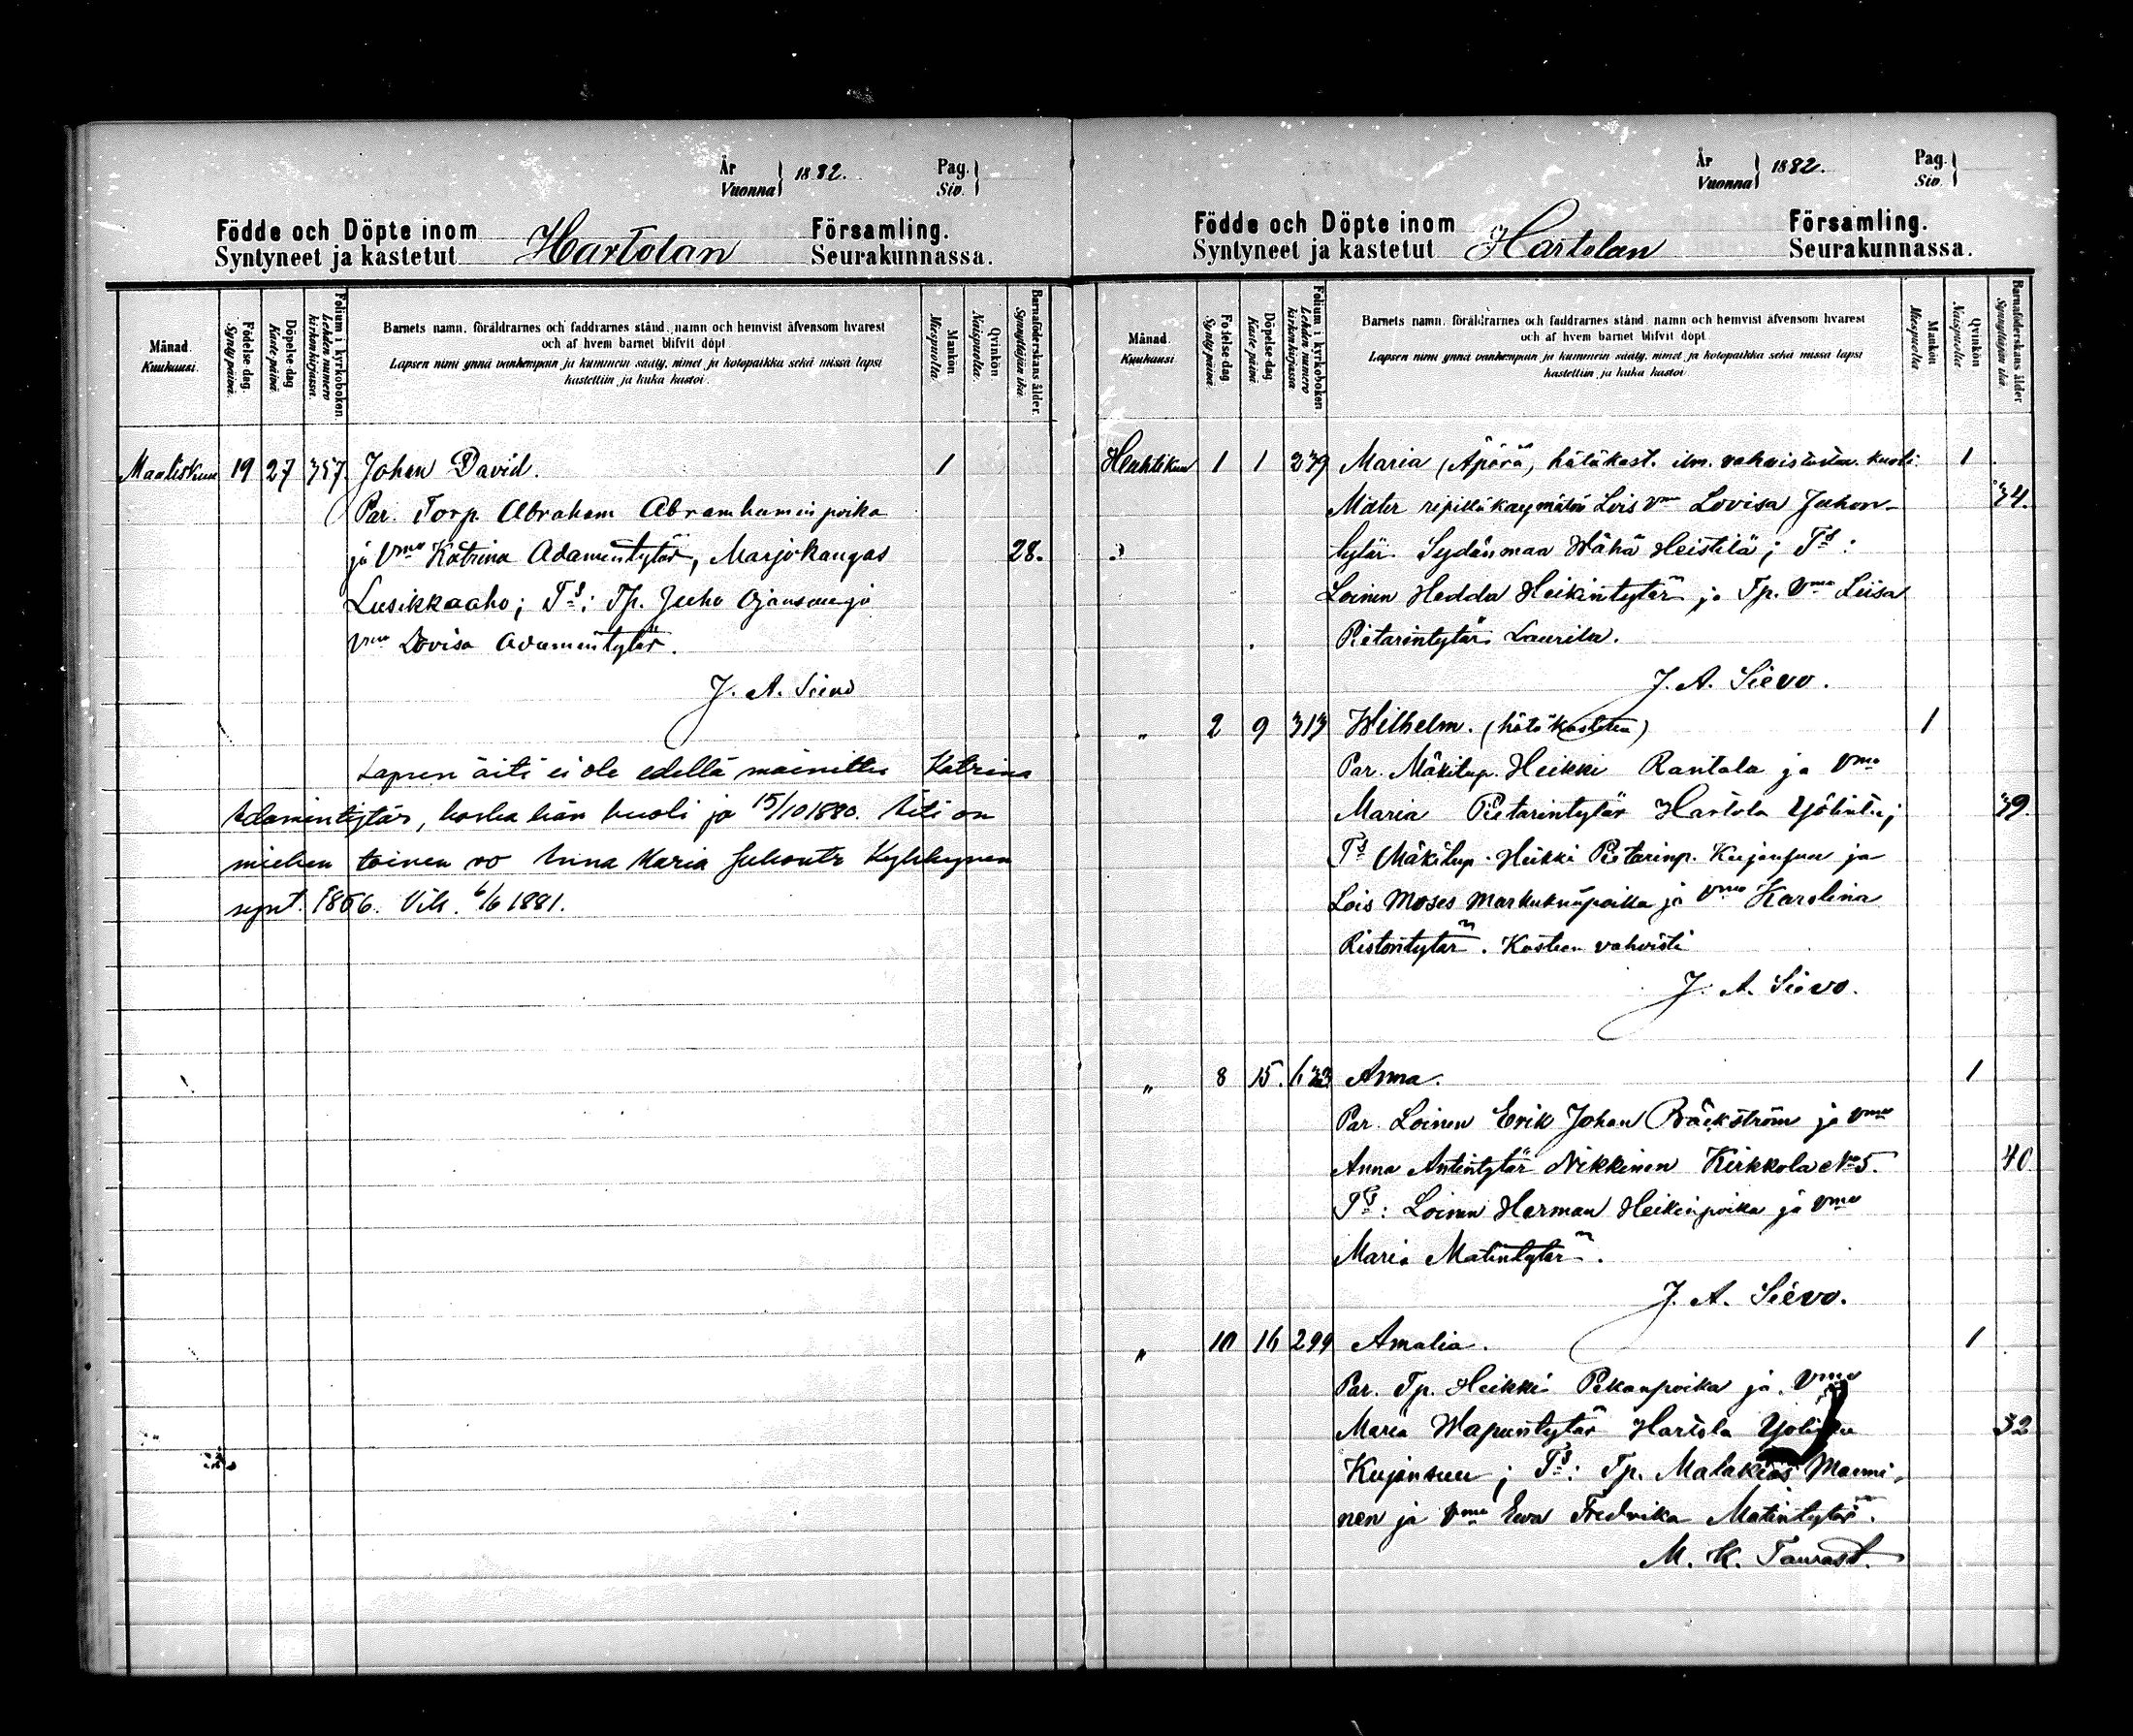 År
Vuonna } 1882.
Pag.
Siv. }
Födde och Döpte inom Församling.
Syntyneet ja kastetut Hartolan Seurakunnassa.
Månad.
Kuukausi.
Födelse dag.
Synty päivä.
Döpelse dag
Kaste päivä.
Folium i kyrkoboken
Lehden numero
kirkon kirjassa.
Barnets namn, föräldrarnes och faddrarnes stånd, namn och hemvist äfvensom hvarest
och af hvem barnet blifvit döpt.
Lapsen nimi ynnä vanhempain ja kummein sääty, nimet ja kotopaikka sekä missä lapsi
kastettiin ja kuka kastoi.
Mankön
Miespuolta.
Qvinkön.
Naispuolta.
Barnaföderskans ålder.
Synnyttäjän ikä.
Maaliskuu 19 27 357. Johan David. 1
Par. Torp. Abraham Abramhaminpoika
ja Vmo Katrina Adamintytär, Marjokangas 28.
Lusikkaaho; Ts: Tp. Juho Ojansuu ja
Vmo Lovisa Adamintytär.
J. A. Sievo
Lapsen äiti ei ole edellä mainittu Katrina
Adamintytär, koska hän kuoli jo 15/10 1880. Äiti on
miehen toinen vo Anna Maria Juhontr Kylkkynen
synt. 1856. Vih. 6/6 1881.
År
Vuonna } 1882.
Pag.
Siv. }
Födde och Döpte inom Församling.
Syntyneet ja kastetut Hartolan Seurakunnassa.
Månad
Kuukausi
Födelse dag
Synty päivä
Döpelse dag
Kaste päivä
Folium i kyrkoboken
Lehden numero
kirkon kirjassa
Barnets namn, föräldrarnes och faddrarnes stånd, namn och hemvist äfvensom hvarest
och af hvem barnet blifvit döpt
Lapsen nimi ynnä vanhempain ja kummein sääty, nimet ja kotopaikka sekä missä lapsi
kastettiin ja kuka kastoi
Mankön
Miespuolta
Qvinkön
Naispuolta
Barnaföderskans ålder
Synnyttäjän ikä
Huhtikuu 1 1 239 Maria (Äpärä, hätäkast. ilm. vahvistusta kuoli 1
Mater ripillä käymätön Lois Vmo Lovisa Juhon- 34.
tytär Sydänmaa Wähä Heistilä; Ts:
Loinen Hedda Heikintytär ja Tp. Vmo Liisa
Pietarintytär Laurila.
J. A. Sievo.
" 2 9 313 Wilhelm. (hätäkastettu) 1
Par. Mäkitup. Heikki Rantala ja Vmo
Maria Pietarintytär Hartola Yölintu; 39.
Ts Mäkitup. Heikki Pietarinp. Kujansuu ja
Lois Moses Markuksenpoika ja Vmo Karolina
Ristontytär. Kasteen vahvisti
J. A. Sievo.
" 8 15. 633 Anna. 1
Par. Loinen Erik Johan Bäckström ja Vmo
Anna Antintytär Nikkinen Kirkkola No 5. 40
Ts: Loinen Herman Heikinpoika ja Vmo
Maria Matintytär.
J. A. Sievo.
" 10 16 299 Amalia. 1
Par. Tp. Heikki Pekanpoika ja Vmo
Maria Mapuntytär Hartola 32
Kujansuu; Ts: Tp. Malakias Manni-
nen ja Vmo Eva Fredrika Matintytär.
M. K. Taurast.